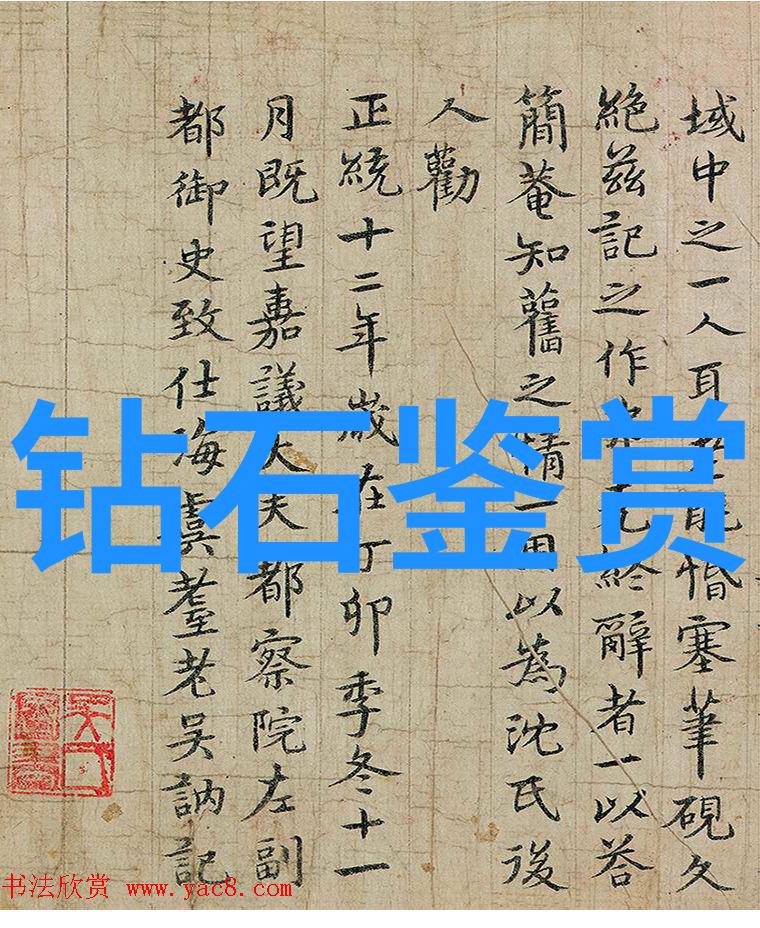 域中之一人耳惛塞筆硯久
絶兹記之作終辭者一以荅
簡菴知舊之情一用以為沈氏後
人勸
正統十二年歲在丁卯季冬十一
月既望嘉議大夫都察院左副
都御史致仕海虞耋老吳訥記
钻石鉴赏
书法欣赏 www.yac8.com